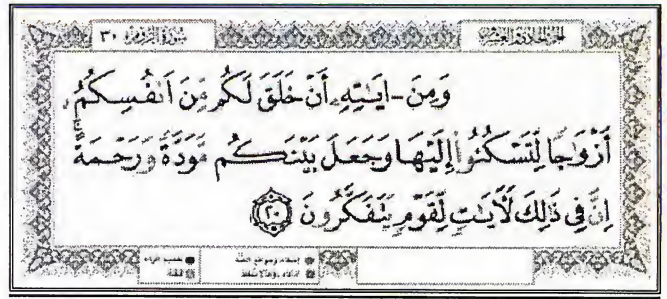 سُورَةُ الرُّومِ ٣٠ الجزء الحادي والعشرون
وَمِنَ ـ ايَٰتِهِۦٓ أَنْ خَلَقَ لَكُم مِّنَ اَنفُسِكُمُۥٓ
أَزْوَٰجٗا لِّتَسْكُنُوٓاْ إِلَيْهَا وَجَعَلَ بَيْنَكُم مَّوَدَّةٗ وَرَحْمَةًۖ
اِنَّ فِي ذَٰلِكَ لَأَيَٰتٖ لِّقَوْمٖ يَتَفَكَّرُونَ ٢٠